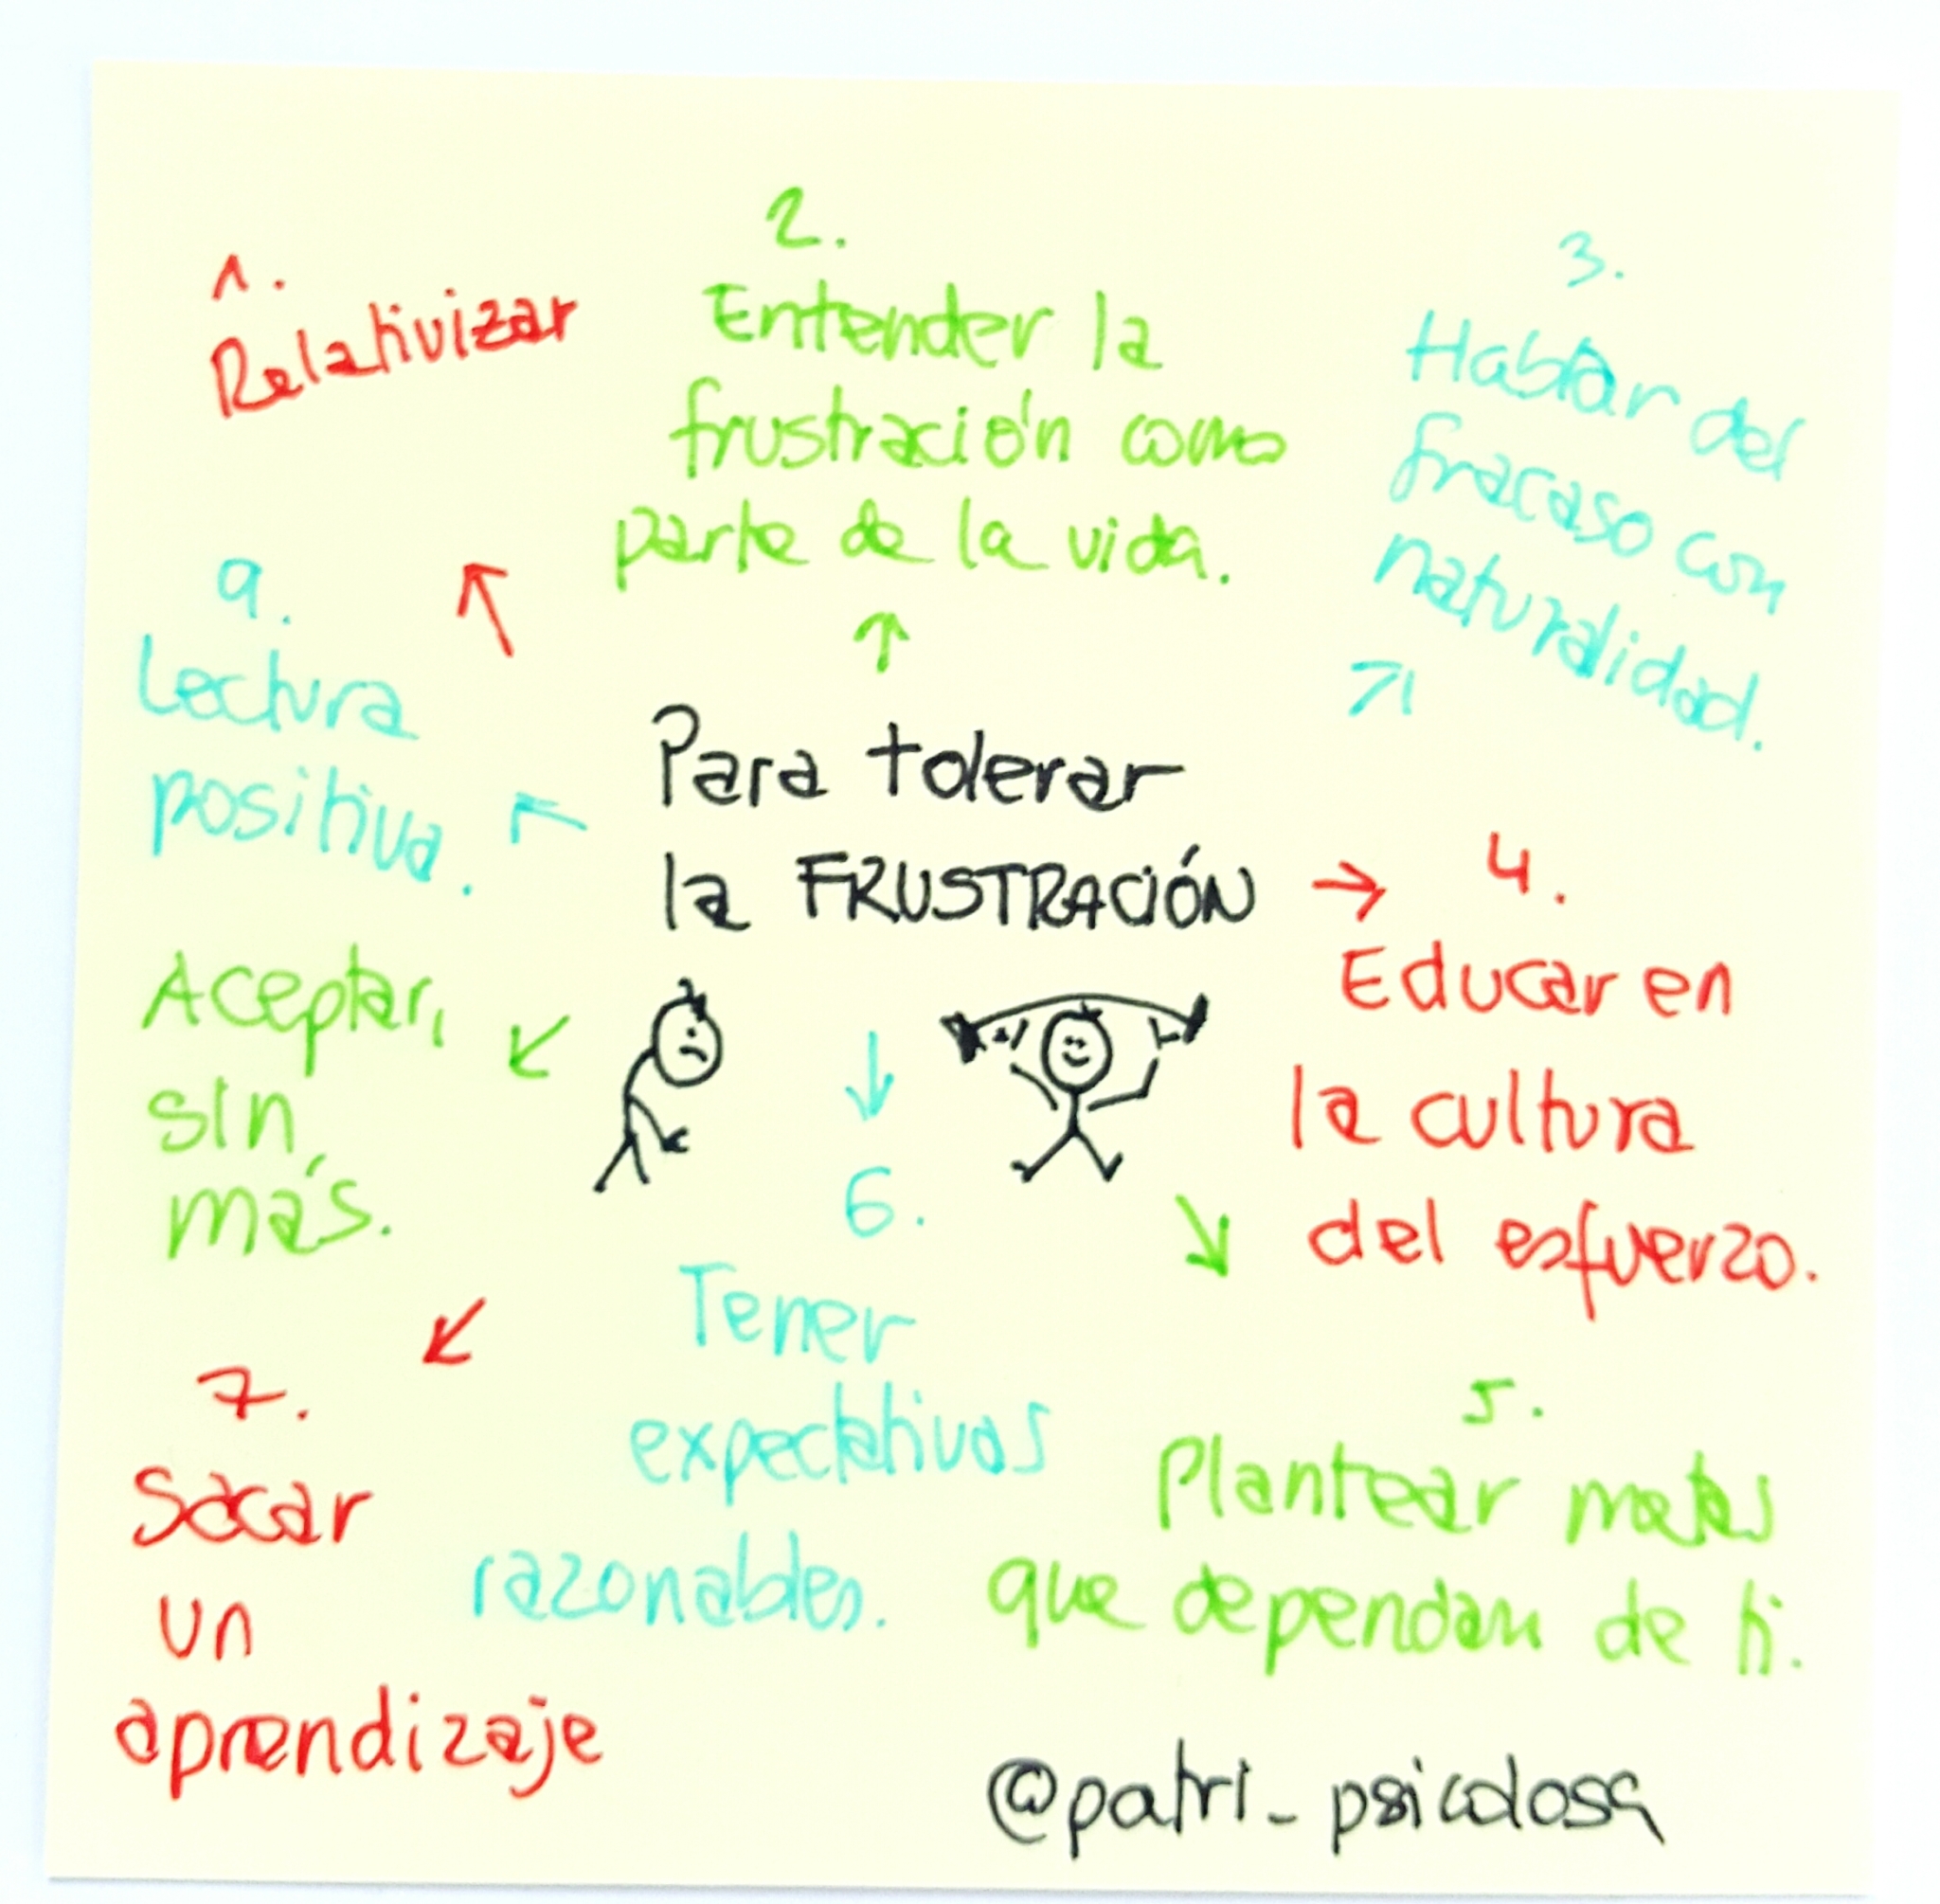 1.
Relativizar
2.
Entender la
frustración como
parte de la vida.
3.
Hablar del
fracaso con
naturalidad.
Para tolerar
la FRUSTRACIÓN
4.
Educar en
la cultura
del esfuerzo.
5.
Plantear metas
que dependan de ti.
6.
Tener
expectativas
razonables.
7.
Sacar
un
aprendizaje
Aceptar,
sin
más.
9.
Lectura
positiva.
@patri_psicolosa